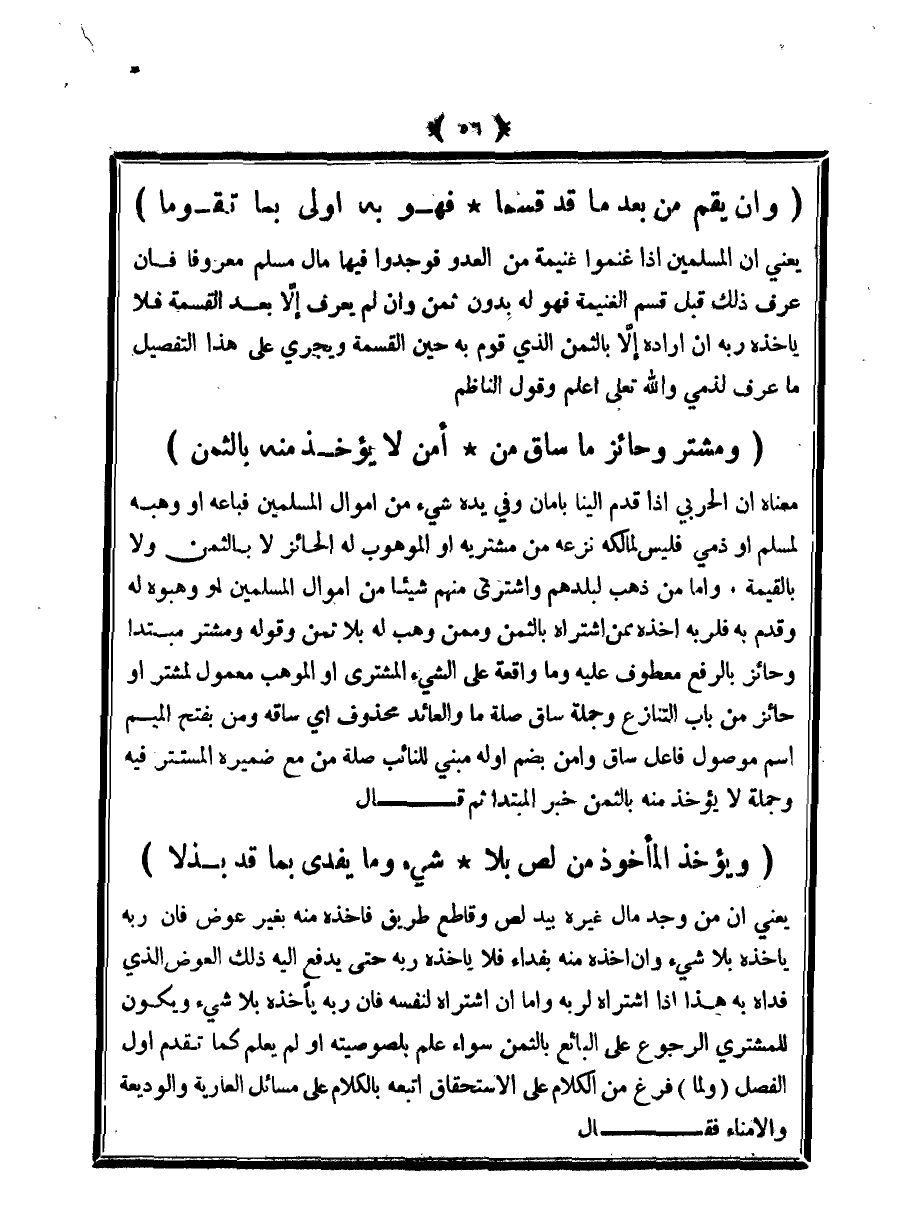 ﴿ ٥٦ ﴾
( وان يقم من بعد ما قد قسما * فهو به اولى بما تقوما )
يعني ان المسلمين اذا غنموا غنيمة من العدو فوجدوا فيها مال مسلم معروفا فان
عرف ذلك قبل قسم الغنيمة فهو له بدون ثمن وان لم يعرف إلّا بعد القسمة فلا
ياخذه ربه ان اراده إلّا بالثمن الذي قوم به حين القسمة ويجري على هذا التفصيل
ما عرف لذمي والله تعلى اعلم وقول الناظم
( ومشتر وحائز ما ساق من * أمن لا يؤخذ منه بالثمن )
معناه ان الحربي اذا قدم الينا بامان وفي يده شيء من اموال المسلمين فباعه او وهبه
لمسلم او ذمي فليس لمالكه نزعه من مشتريه او الموهوب له الحائز لا بالثمن ولا
بالقيمة ٠ واما من ذهب لبلدهم واشترى منهم شيئا من اموال المسلمين او وهبوه له
وقدم به فلربه اخذه ممن اشتراه بالثمن وممن وهب له بلا ثمن وقوله ومشتر مبتدا
وحائز بالرفع معطوف عليه وما واقعة على الشيء المشترى او الموهب معمول لمشتر او
حائز من باب التنازع وجملة ساق صلة ما والعائد محذوف اي ساقه ومن بفتح الميم
اسم موصول فاعل ساق وامن بضم اوله مبني للنائب صلة من مع ضميره المستتر فيه
وجملة لا يؤخذ منه بالثمن خبر المبتدا ثم قـــــال
( ويؤخذ المأخوذ من لص بلا * شيء وما يفدى بما قد بذلا )
يعني ان من وجد مال غيره بيد لص وقاطع طريق فاخذه منه بغير عوض فان ربه
ياخذه بلا شيء وان اخذه منه بفداء فلا ياخذه ربه حتى يدفع اليه ذلك العوض الذي
فداه به هذا اذا اشتراه لربه واما ان اشتراه لنفسه فان ربه يأخذه بلا شيء ويكون
للمشتري الرجوع على البائع بالثمن سواء علم بلصوصيته او لم يعلم كما تقدم اول
الفصل ( ولما ) فرغ من الكلام على الاستحقاق اتبعه بالكلام على مسائل العارية والوديعة
والامناء فقـــــال